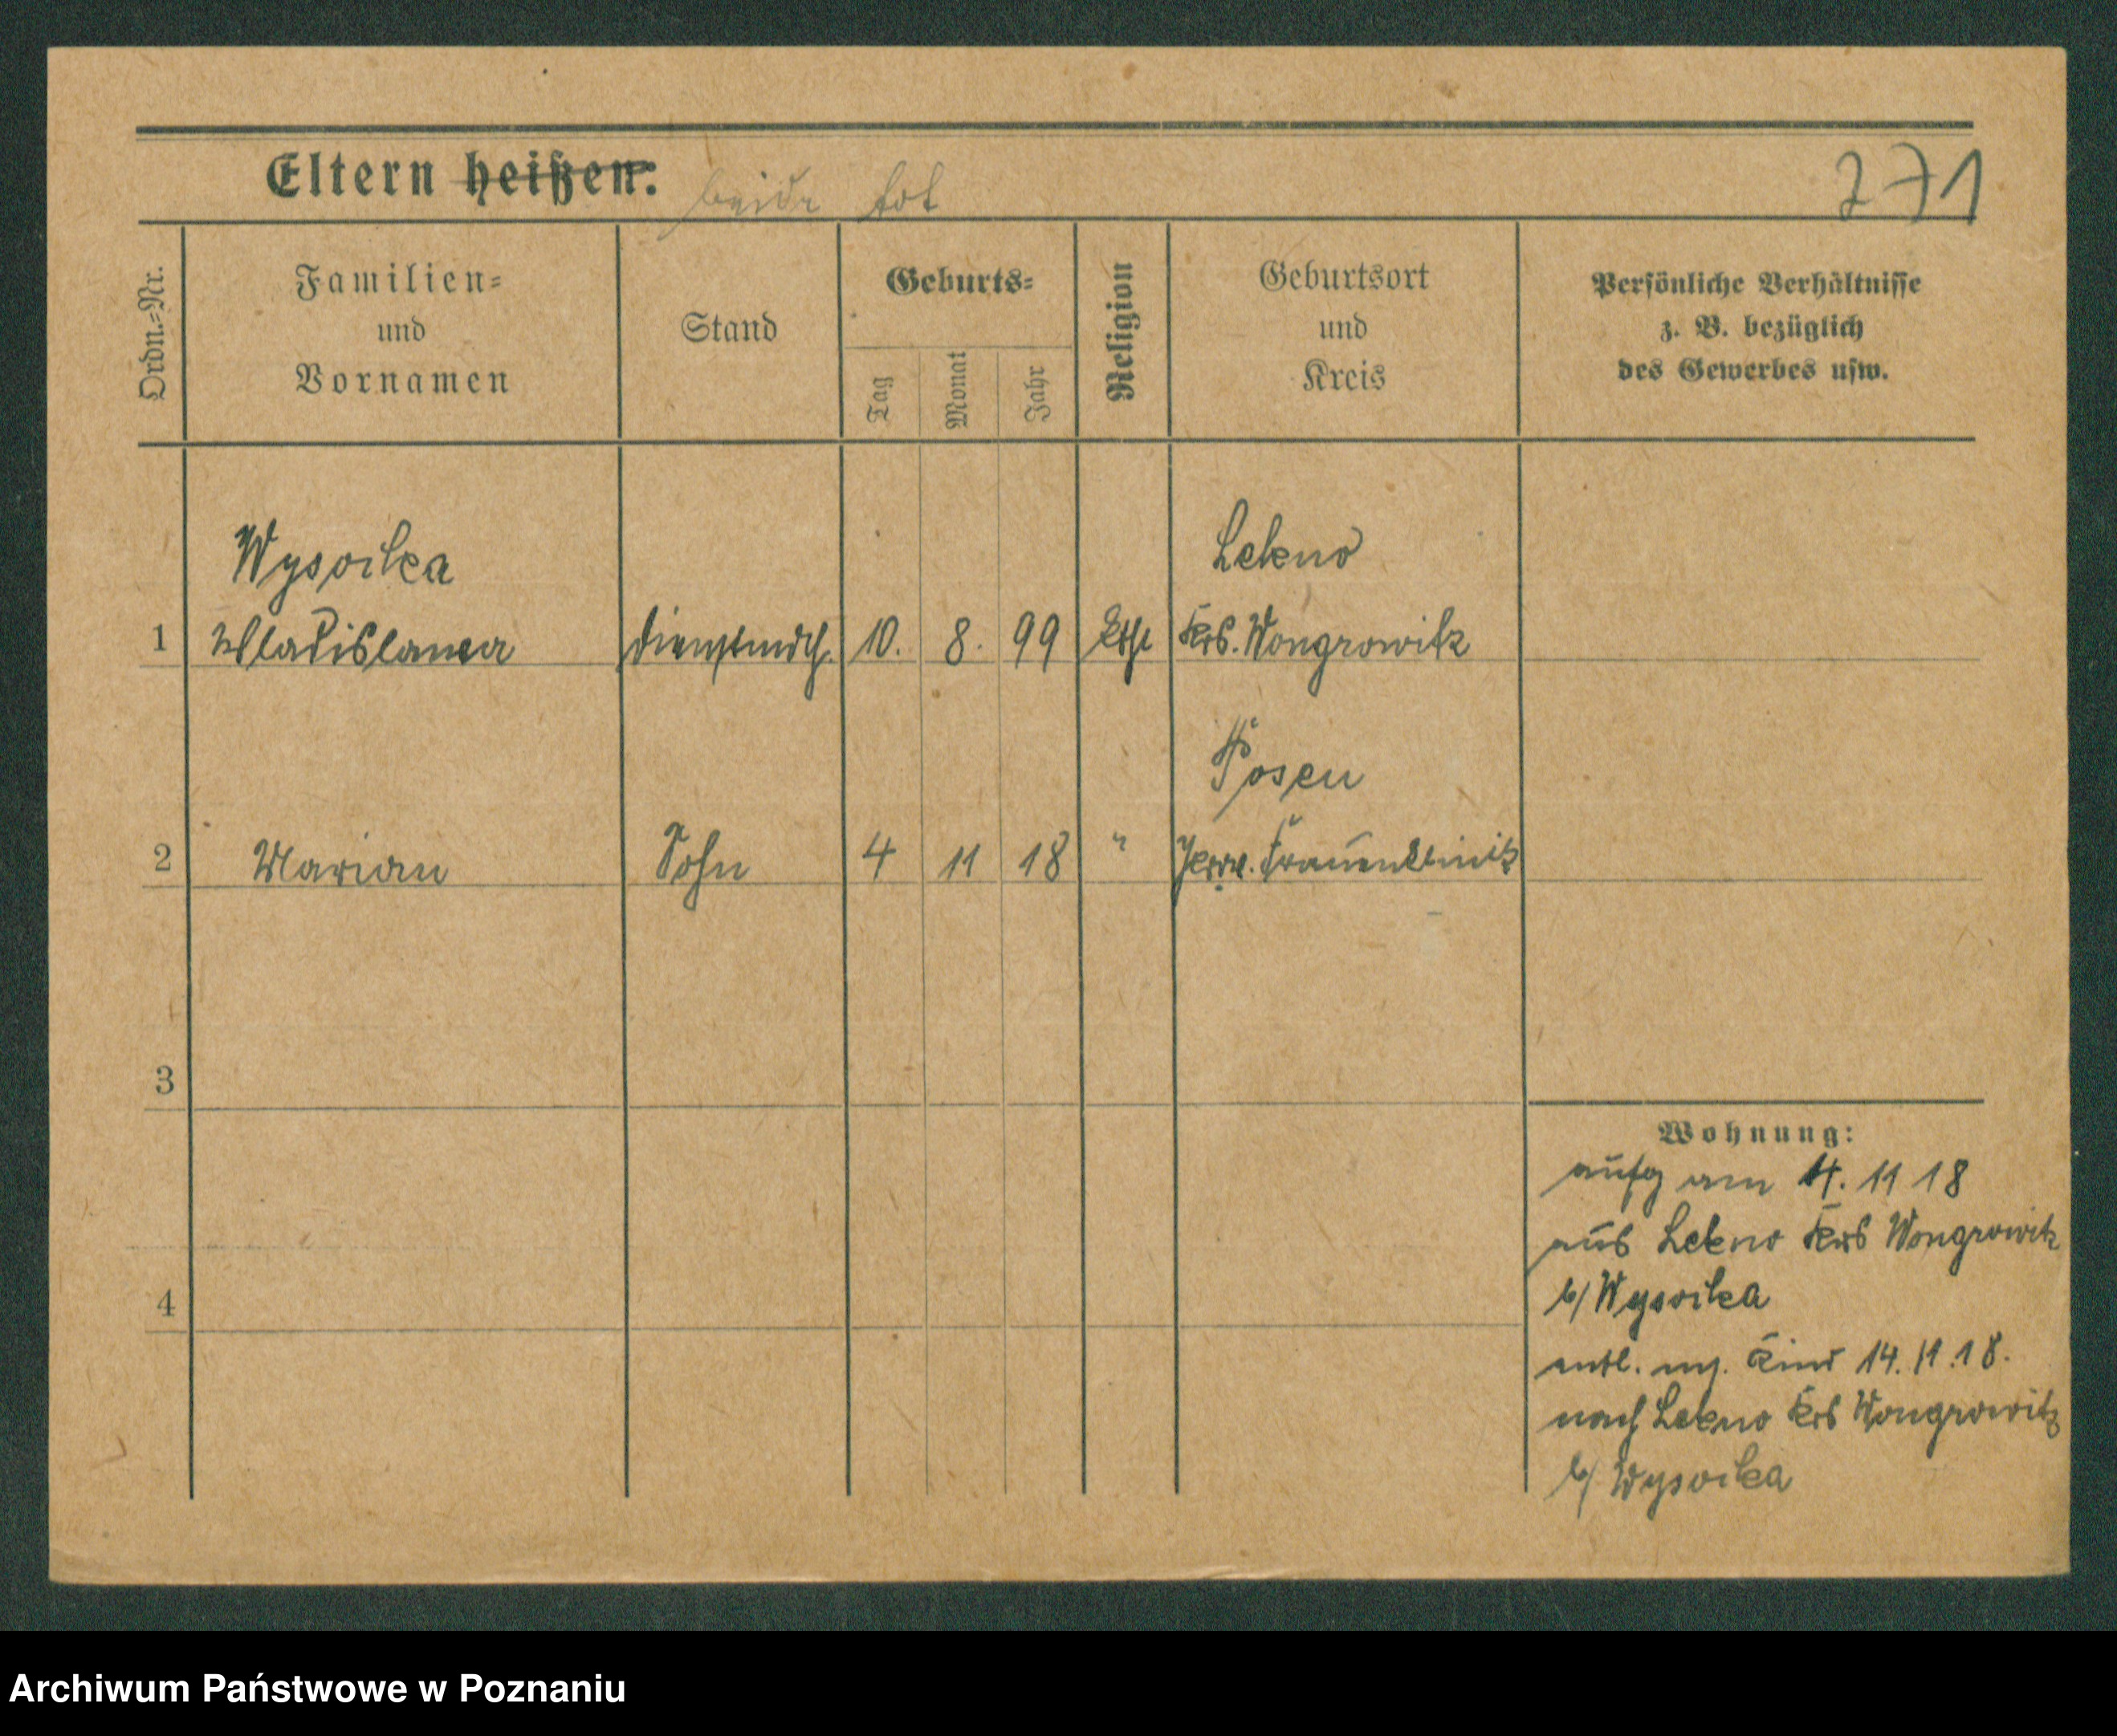 Eltern heißen: beide tot
271
Ordn.=Nr.
Familien=
und
Vornamen
Stand
Geburts=
Tag
Monat
Jahr
Religion
Geburtsort
und
Kreis
Persönliche Verhältnisse
z. B. bezüglich
des Gewerbes usw.
Wysocka
Lekno
1 Wladislawa Dienstmdch. 10. 8. 99 kth Krs. Wongrowitz
Posen
2 Marian Sohn 4 11 18 " Frauenklinik
3
Wohnung:
aufg am 4. 11 18
aus Lekno Krs Wongrowitz
4
b/ Wysocka
entl. m. Kind 14. 11. 18.
nach Lekno Krs Wongrowitz
b/ Wysocka
Archiwum Państwowe w Poznaniu